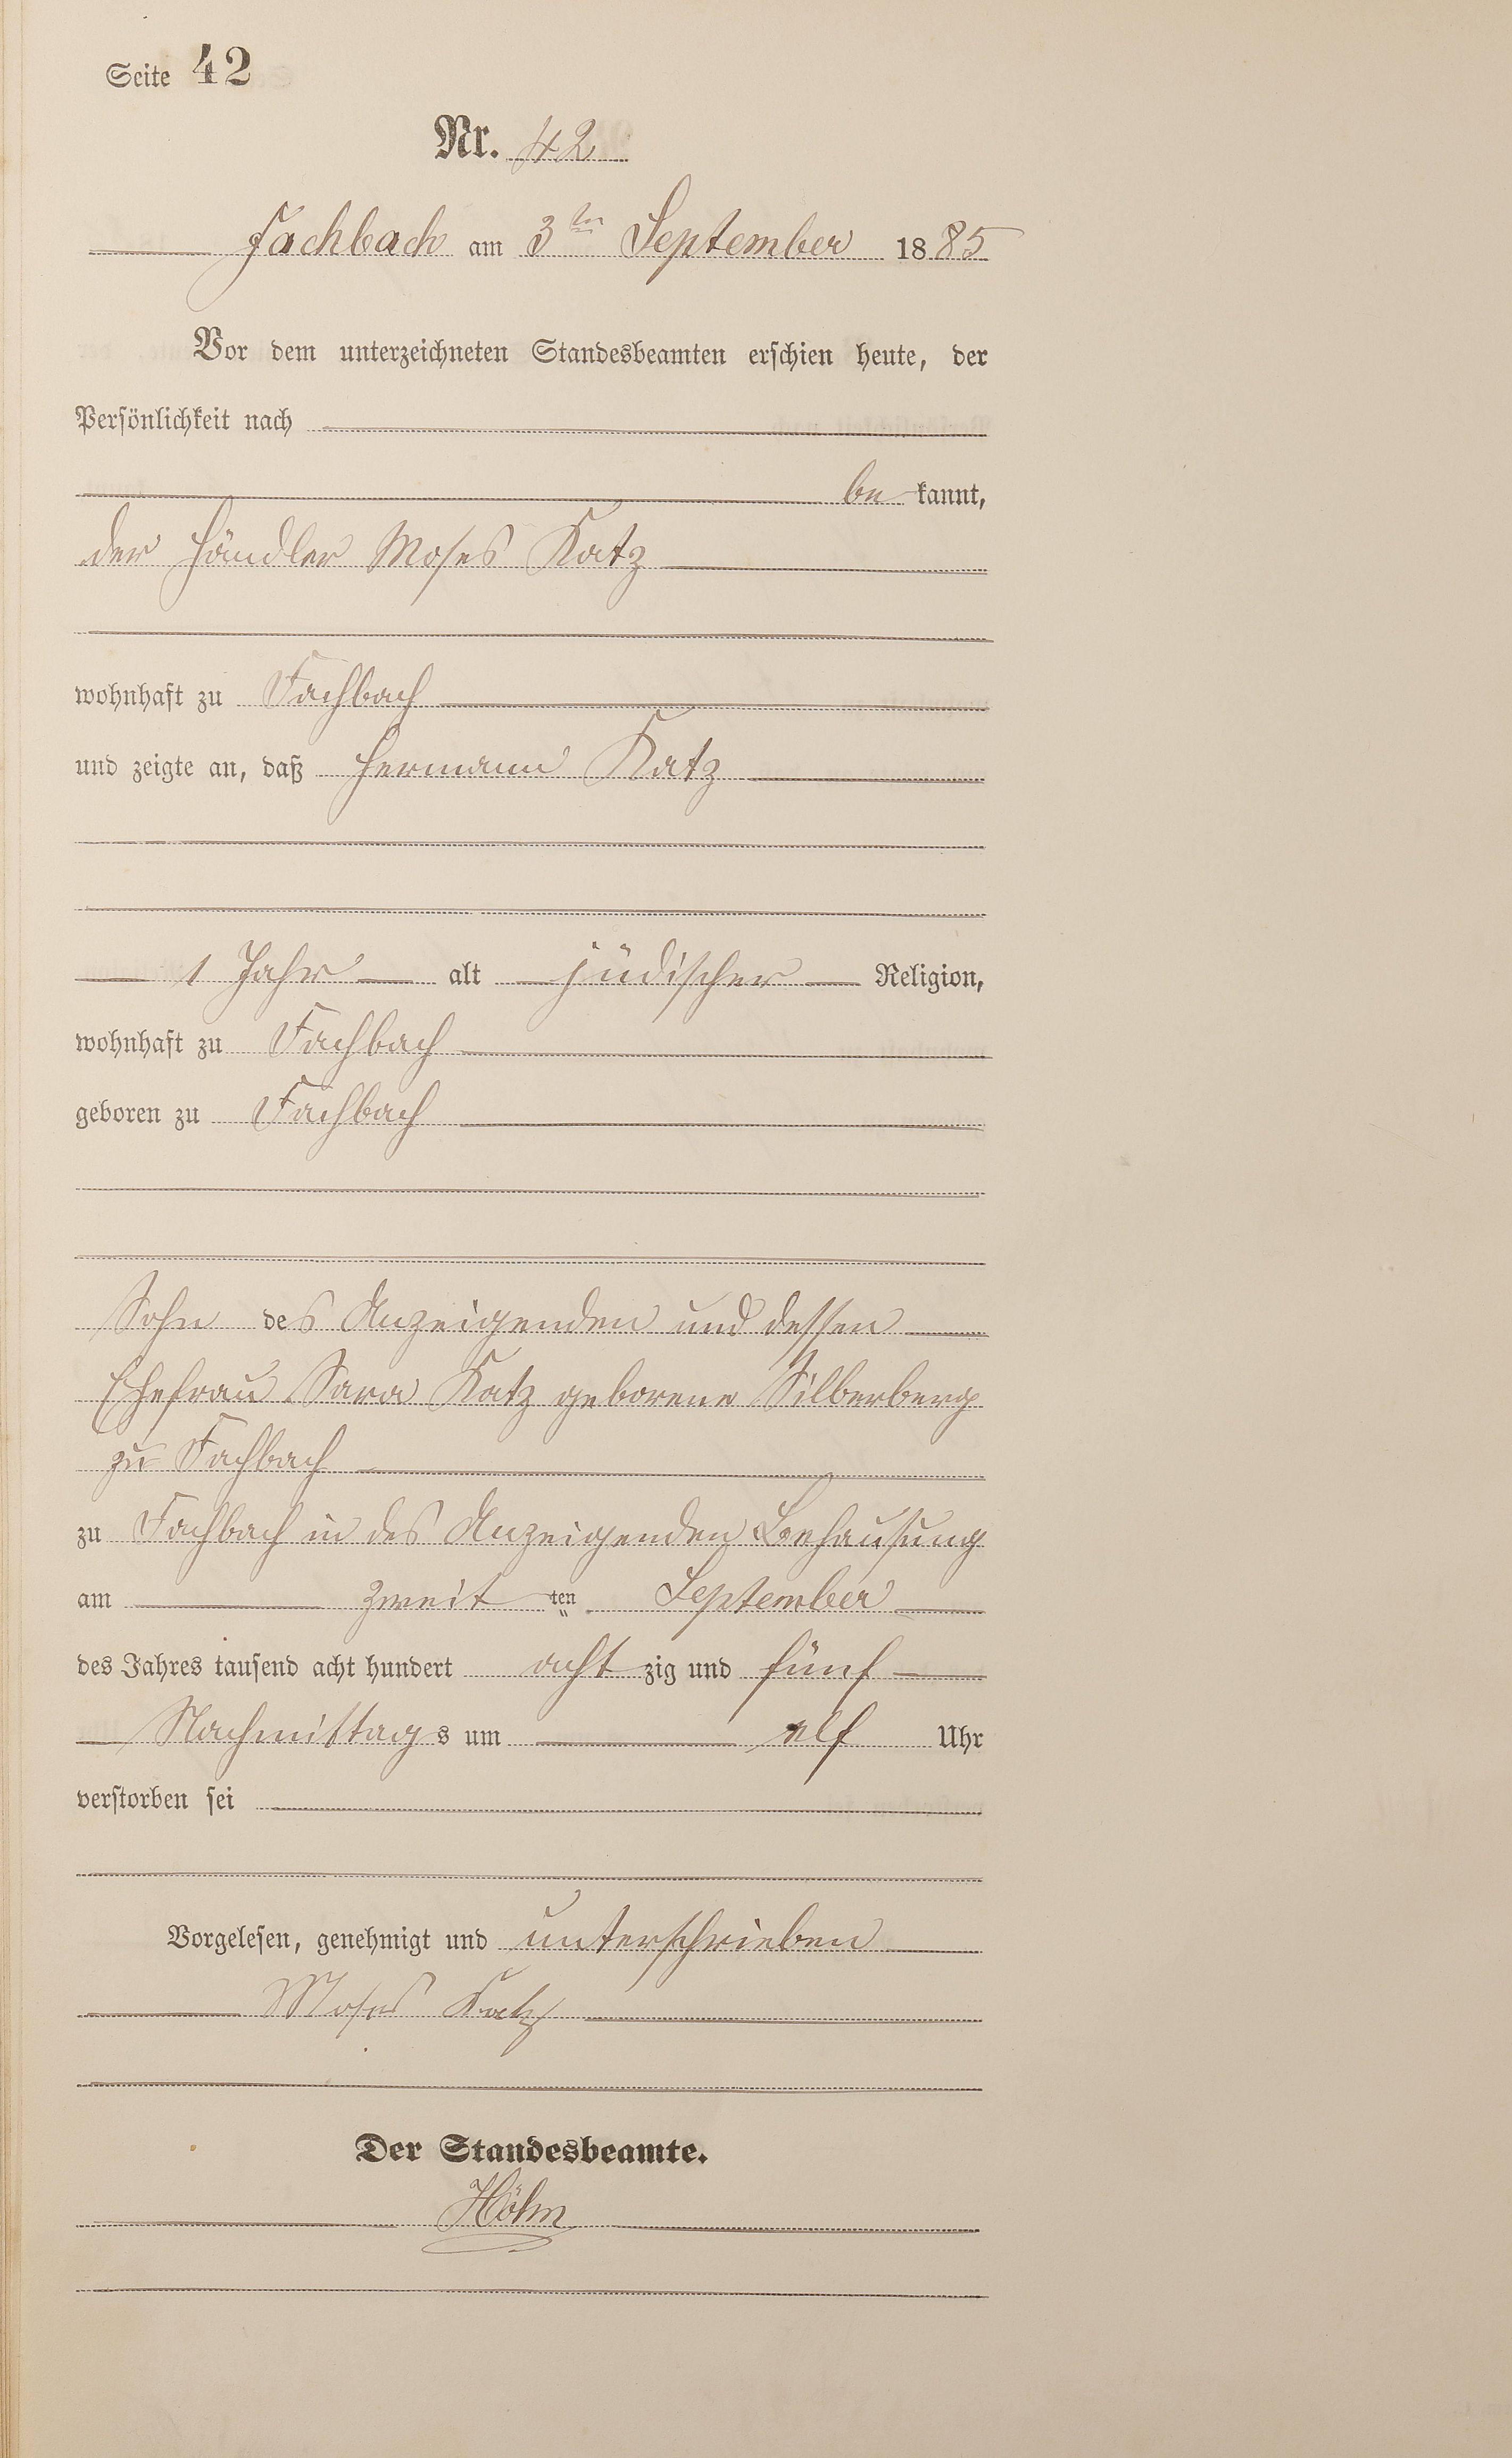 Seite 42
Nr. 42
Fachbach am 3ten September 1885
Vor dem unterzeichneten Standesbeamten erschien heute, der
Persönlichkeit nach
be kannt,
der Händler Moses Katz
wohnhaft zu Fachbach
und zeigte an, daß Hermann Katz
1 Jahr alt jüdischer Religion,
wohnhaft zu Fachbach
geboren zu Fachbach
Sohn des Anzeigenden und dessen
Ehefrau Sara Katz geborene Silberberg
zu Fachbach
zu Fachbach in des Anzeigenden Behausung
am zweit ten September
des Jahres tausend acht hundert acht zig und fünf
Nachmittags um elf Uhr
verstorben sei
Vorgelesen, genehmigt und unterschrieben
Moses Katz
Der Standesbeamte.